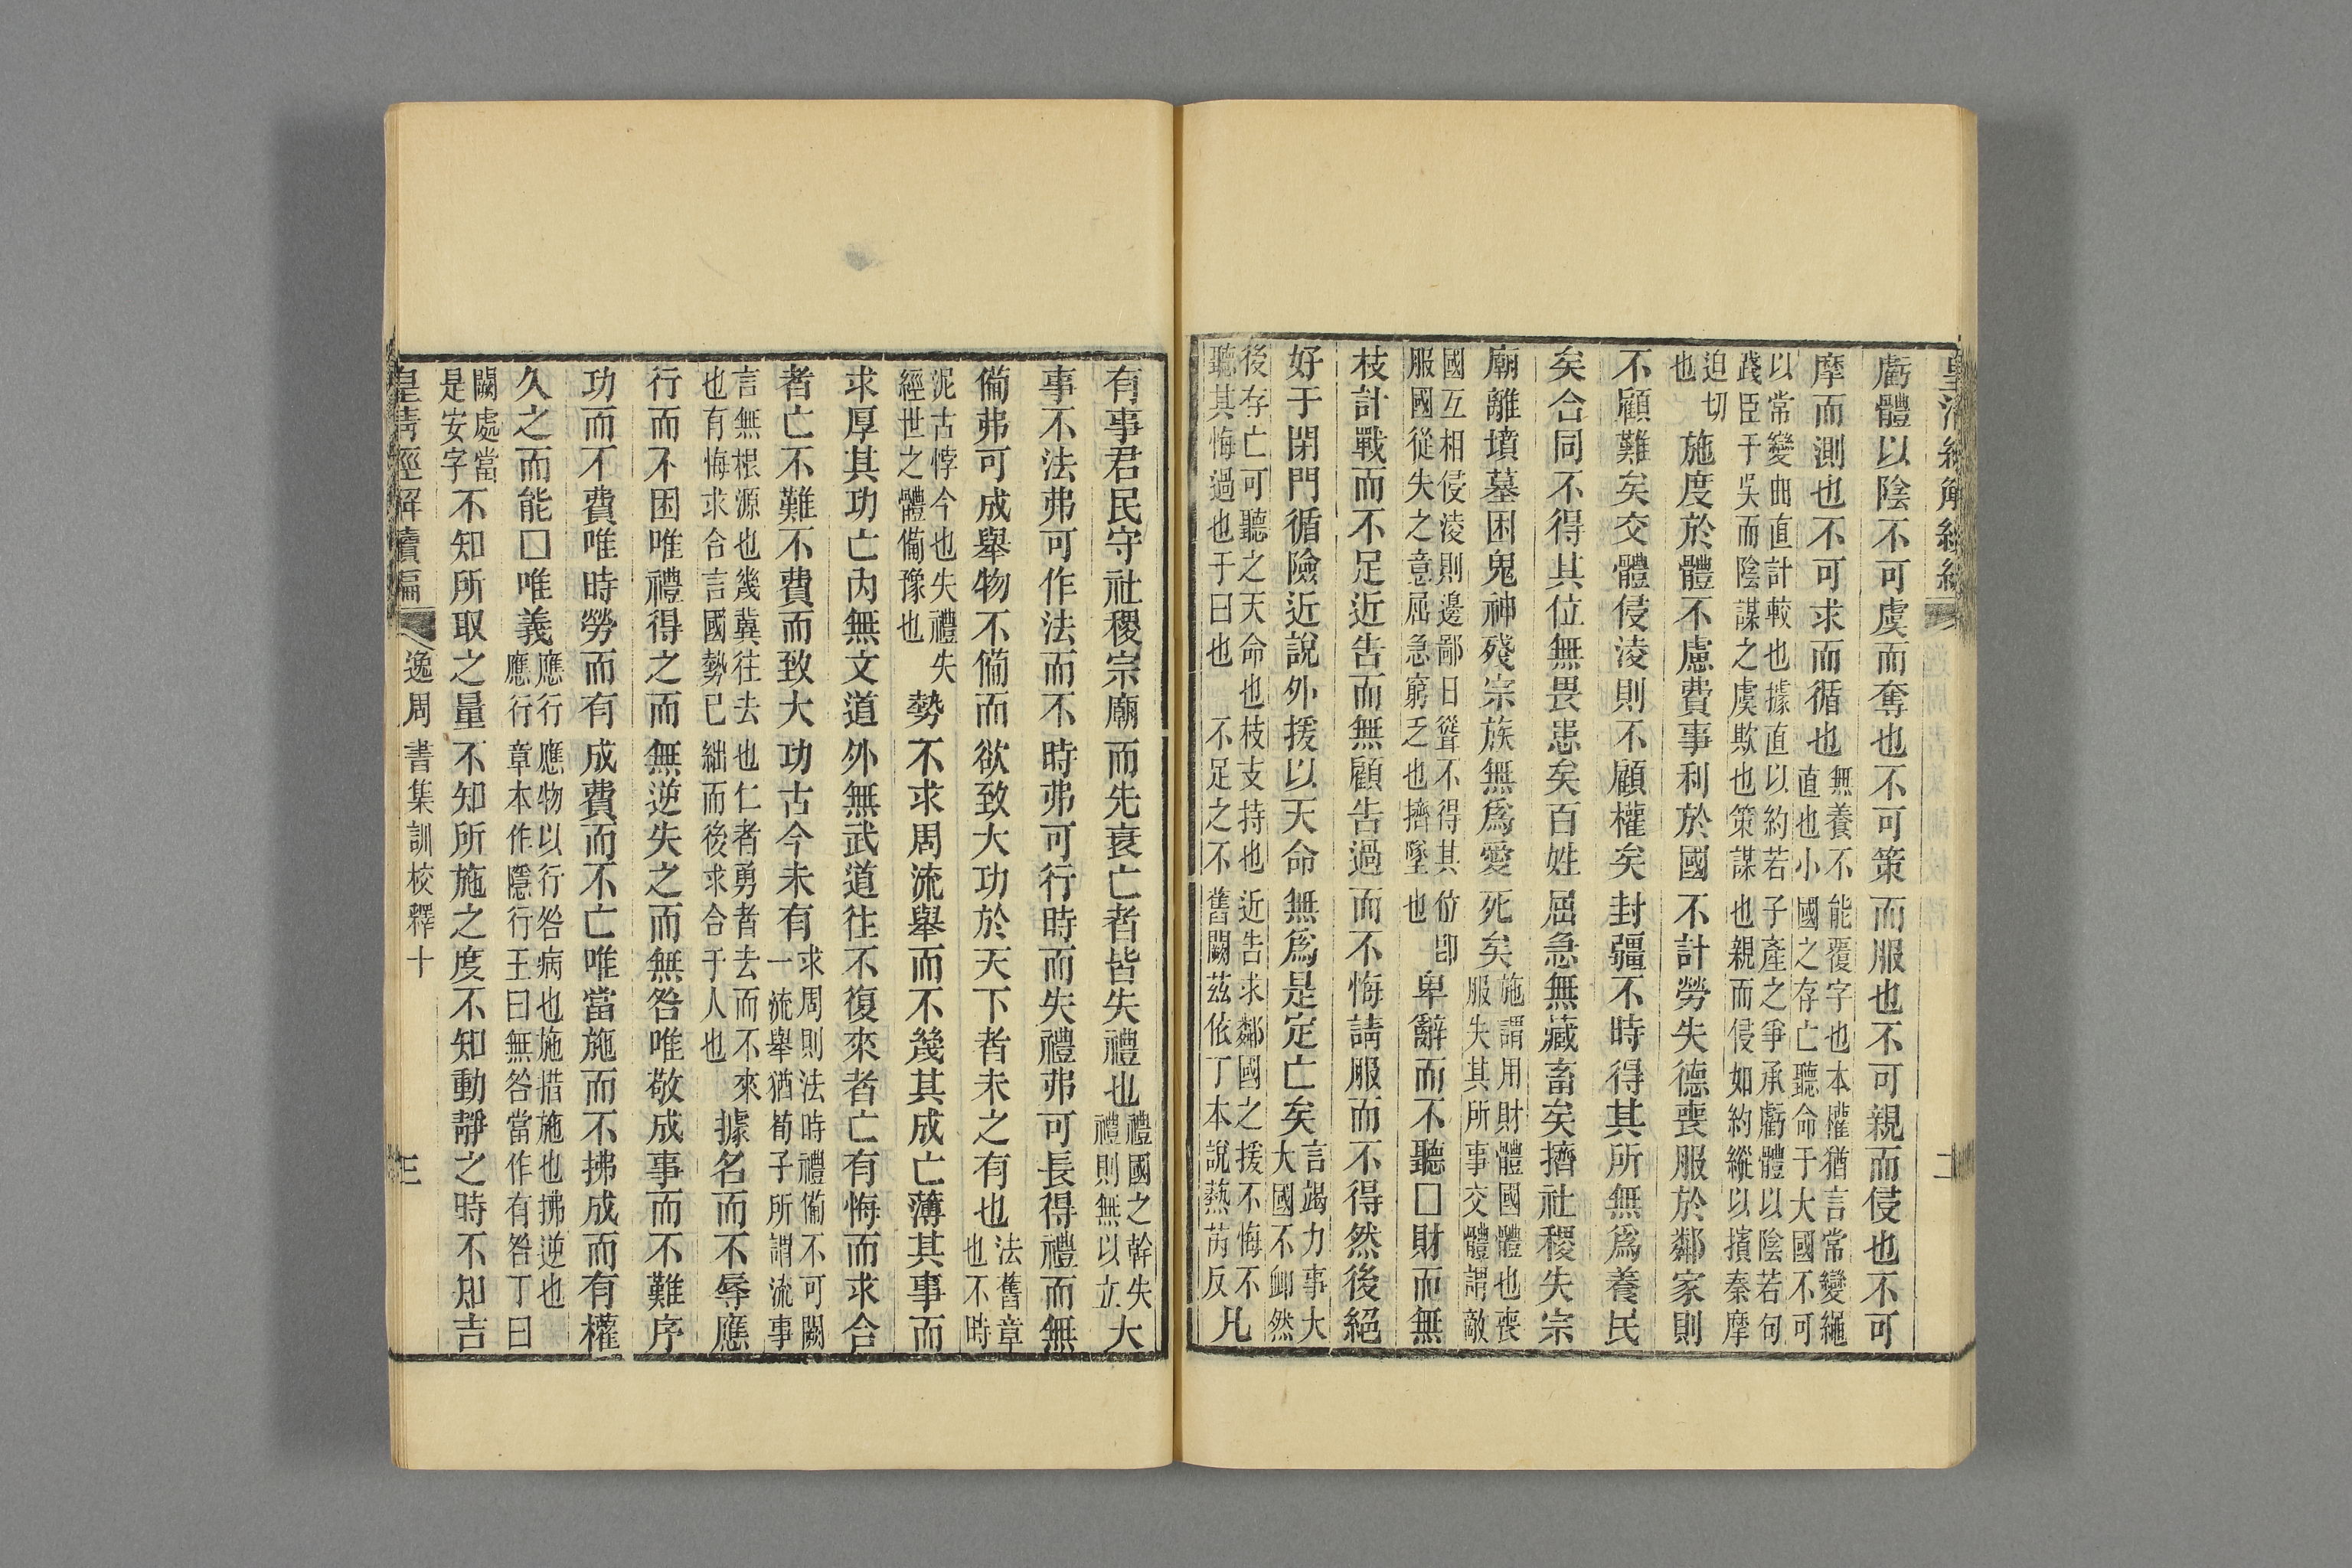 虧體以陰不可虞而奪也不可策而服也不可親而侵也不可
摩而測也不可求而循也無養不能覆字也本權猶言常變繩
直也小國之存亡聽命于大國不可
以常變曲直計較也據直以約若子產之爭承虧體以陰若句
踐臣于吳而陰謀之虞欺也策謀也親而侵如約縱以擯秦摩
迫切
也
施度於體不慮費事利於國不計勞失德喪服於鄰家則
不顧難矣交體侵淩則不顧權矣封疆不時得其所無爲養民
矣合同不得其位無畏患矣百姓屈急無藏畜矣擠社稷失宗
廟離墳墓困鬼神殘宗族無爲愛死矣施謂用財體國體也喪
服失其所事交體謂敵
國互相侵淩則邊鄙日聳不得其位卽
服國從失之意屈急窮乏也擠墜也
卑辭而不聽□財而無
枝計戰而不足近告而無顧告過而不悔請服而不得然後絕
好于閉門循險近說外援以天命無爲是定亡矣言竭力事大
大國不卹然
後存亡可聽之天命也枝支持也近告求鄰國之援不悔不
聽其悔過也于曰也不足之不舊闕茲依丁本說爇芮反
凡
二
有事君民守社稷宗廟而先衰亡者皆失禮也禮國之幹失
禮則無以立
大
事不法弗可作法而不時弗可行時而失禮弗可長得禮而無
備弗可成舉物不備而欲致大功於天下者未之有也法舊章
也不時
泥古悖今也失禮失
經世之體備豫也
勢不求周流舉而不幾其成亡薄其事而
求厚其功亡內無文道外無武道往不復來者亡有悔而求合
者亡不難不費而致大功古今未有求周則法時禮備不可闕
一流舉猶荀子所謂流事
言無根源也幾冀往去也仁者勇者去而不來
也有悔求合言國勢已絀而後求合于人也
據名而不辱應
行而不困唯禮得之而無逆失之而無咎唯敬成事而不難序
功而不費唯時勞而有成費而不亡唯當施而不拂成而有權
久之而能□唯義應行應物以行咎病也施措施也拂逆也
應行章本作隱行王曰無咎當作有咎丁曰
闕處當
是安字
不知所取之量不知所施之度不知動靜之時不知吉
皇清經解續編
逸周書集訓校釋十
三